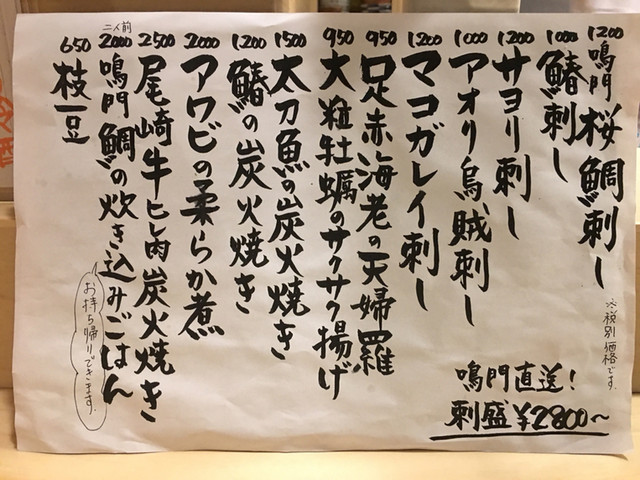 1200 鳴門桜鯛刺し
1000 鰆刺し
1200 サヨリ刺し
1000 アオリ烏賊刺し
1200 マコガレイ刺し
950 足赤海老の天婦羅
950 大粒牡蠣のサクサク揚げ
1500 太刀魚の炭火焼き
1200 鰆の炭火焼き
2000 アワビの柔らか煮
2500 尾崎牛ヒレ肉炭火焼き
二人前
2000 鳴門鯛の炊き込みごはん
お持ち帰りできます。
650 枝豆
※税別価格です。
鳴門直送!
刺盛¥2800〜